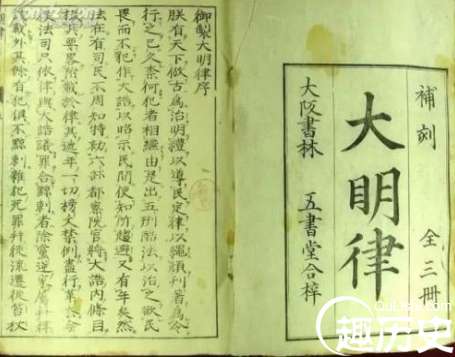 補刻
大明律
全三冊
大阪書林　五書堂合梓
御製大明律序
朕有天下倣古為治明禮以導民定律以繩頑刊著為令
行之已久奈何犯者相繼由是出五刑酷法以治之欲民
畏而不犯作大誥以昭示民間使知所趨避又有年矣然
法在有司民不周知特勑六部都察院官將大誥內條目
撮其要畧附載於律其遞年一切榜文禁例盡行革去今
法司只依律與大誥議罪合黥刺者除黨逆家屬并律
載外其餘有犯俱不黥刺雜犯死罪并徒流遷徙笞杖
趣历史